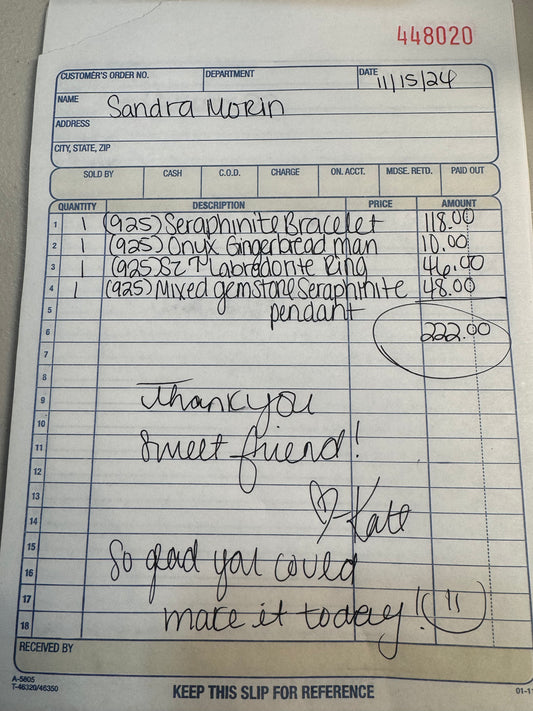 448020
CUSTOMER'S ORDER NO. DEPARTMENT DATE 11/15/24
NAME Sandra Morin
ADDRESS
CITY, STATE, ZIP
SOLD BY CASH C.O.D. CHARGE ON. ACCT. MDSE. RETD. PAID OUT
QUANTITY DESCRIPTION PRICE AMOUNT
1 1 (925) Seraphinite Bracelet 118.00
2 1 (925) Onyx Gingerbread man 10.00
3 1 (925) SZ 7 Labradorite Ring 46.00
4 1 (925) Mixed gemstone Seraphinite 48.00
5 pendant
6 222.00
7
8
9 Thank you
10
11 Sweet friend!
12
13
14 Kate
15
16 So glad you could
17
18 make it today!!
RECEIVED BY
A-5805
T-46320/46350 KEEP THIS SLIP FOR REFERENCE 01-11